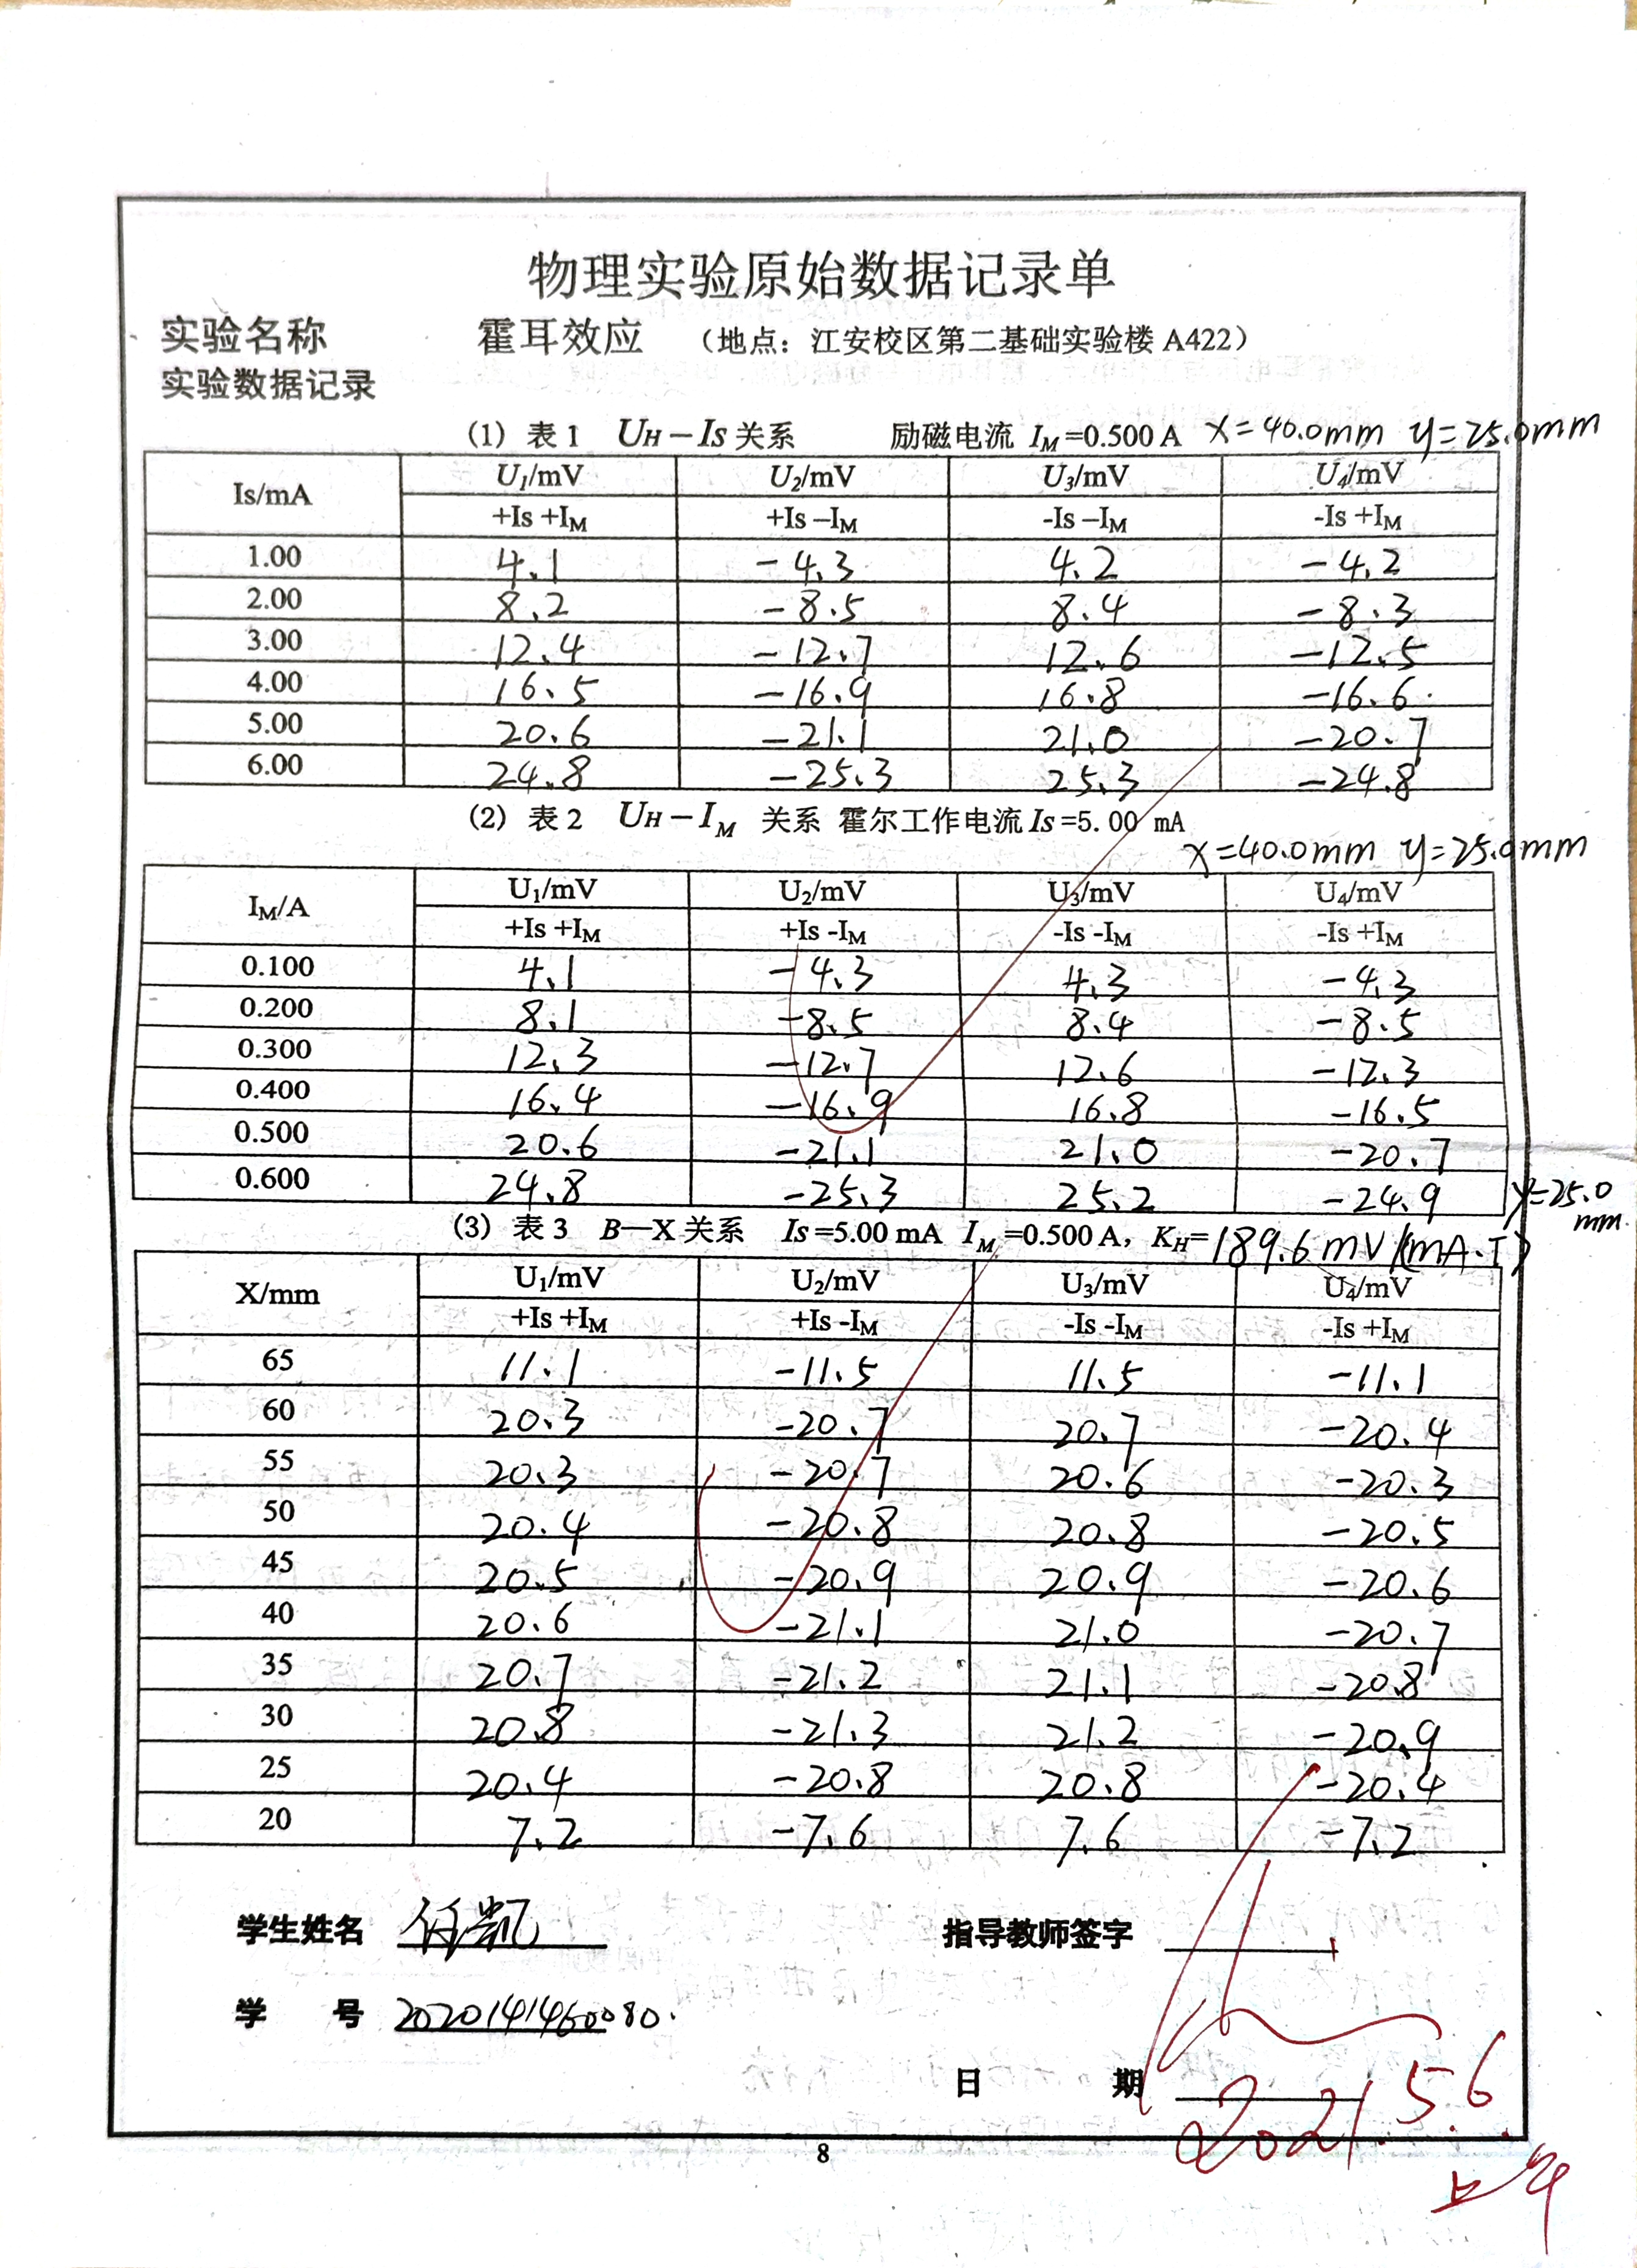 物理实验原始数据记录单
实验名称 霍耳效应 (地点：江安校区第二基础实验楼 A422)
实验数据记录
(1) 表1 UH－Is 关系 励磁电流 IM=0.500 A x=40.0mm y=25.0mm
Is/mA U1/mV U2/mV U3/mV U4/mV
+Is +IM +Is –IM -Is –IM -Is +IM
1.00 4.1 -4.3 4.2 -4.2
2.00 8.2 -8.5 8.4 -8.3
3.00 12.4 -12.7 12.6 -12.5
4.00 16.5 -16.9 16.8 -16.6
5.00 20.6 -21.1 21.0 -20.7
6.00 24.8 -25.3 25.3 -24.8
(2) 表2 UH－IM 关系 霍尔工作电流 Is=5.00 mA
x=40.0mm y=25.0mm
IM/A U1/mV U2/mV U3/mV U4/mV
+Is +IM +Is -IM -Is -IM -Is +IM
0.100 4.1 -4.3 4.3 -4.3
0.200 8.1 -8.5 8.4 -8.5
0.300 12.3 -12.7 12.6 -12.3
0.400 16.4 -16.9 16.8 -16.5
0.500 20.6 -21.1 21.0 -20.7
0.600 24.8 -25.3 25.2 -24.9
y=25.0
mm
(3) 表3 B—X 关系 Is=5.00 mA IM=0.500 A，KH=189.6mV/(mA·T)
X/mm U1/mV U2/mV U3/mV U4/mV
+Is +IM +Is -IM -Is -IM -Is +IM
65 11.1 -11.5 11.5 -11.1
60 20.3 -20.7 20.7 -20.4
55 20.3 -20.7 20.6 -20.3
50 20.4 -20.8 20.8 -20.5
45 20.5 -20.9 20.9 -20.6
40 20.6 -21.1 21.0 -20.7
35 20.7 -21.2 21.1 -20.8
30 20.8 -21.3 21.2 -20.9
25 20.4 -20.8 20.8 -20.4
20 7.2 -7.6 7.6 -7.2
学生姓名 任凯 指导教师签字
学 号 2020141460080.
日 期 2021.5.6.
上午
8